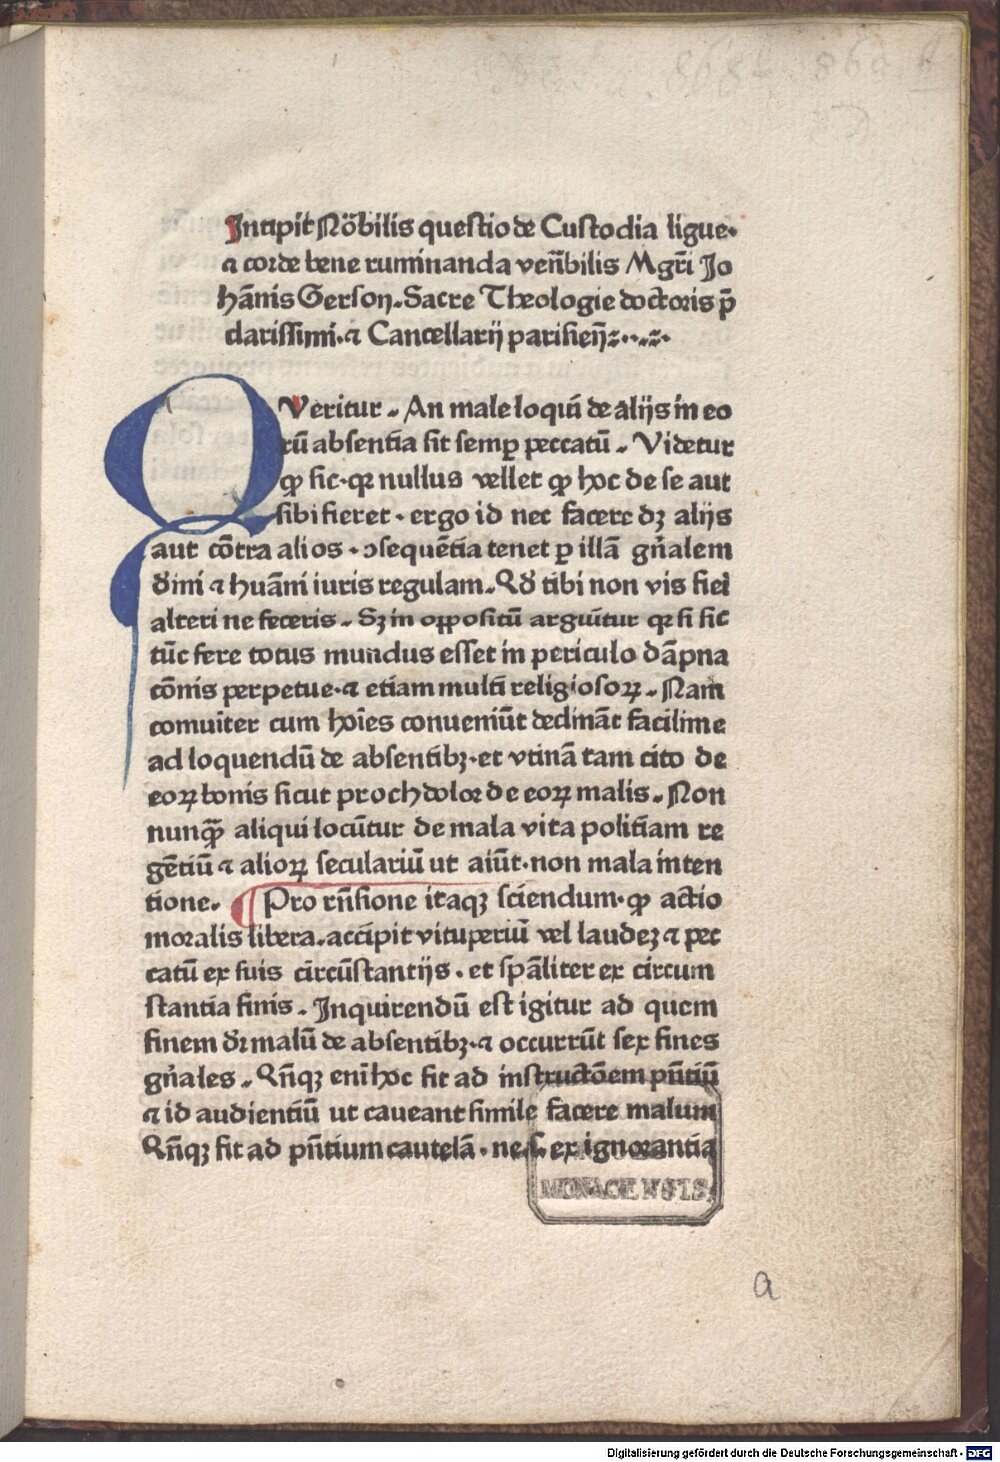 Incipit Nobilis questio de Custodia ligue·
⁊ corde bene ruminanda veñbilis Mgr̄i Jo
hānis Gerson. Sacre Theologie doctoris p̄
clarissimi·⁊ Cancellarij parisieñ:·.·:·
QVeritur. An male loqui de alijs in eo
rū absentia sit semꝑ peccatū. Videtur
ꝙ sic·qꝛ nullus vellet ꝙ hoc de se aut
sibi fieret·ergo id nec facere dꝫ alijs
aut cōtra alios·ↄsequētia tenet ꝑ illā gn̄alem
dīni ⁊ huāni iuris regulam. Qd̄ tibi non vis fieī
alteri ne feceris. Sꝫ in oppositū arguit̄ur qꝛ si sic
tūc fere totus mundus esset in periculo dāpna
cōnis perpetue·⁊ etiam multi religiosoꝝ. Nam
comūiter cum hoīes conueniūt declināt facilime
ad loquendū de absentibꝫ·et vtinā tam cito de
eoꝝ bonis sicut proch dolor de eoꝝ malis. Non
nunꝙ̄ aliqui locūtur de mala vita politiam re
gētiū ⁊ alioꝝ seculariū ut aiūt·non mala inten
tione. ¶ Pro rn̄sione itaqꝫ sciendum·ꝙ actio
moralis libera·accipit vituperiū vel laudeꝫ ⁊ pec
catū ex suis circūstantijs·et sp̄āliter ex circum
stantia finis. Inquirendū est igitur ad quem
finem dr̄ malū de absentibꝫ·⁊ occurrūt sex fines
gn̄ales. Qn̄qꝫ eni hoc fit ad instructōem pn̄tiū
⁊ id audientiū ut caueant simile facere malum
Qn̄qꝫ fit ad pn̄tium cautelā·ne.s. ex ignorantia
MONACENSIS
a
Digitalisierung gefördert durch die Deutsche Forschungsgemeinschaft - DFG